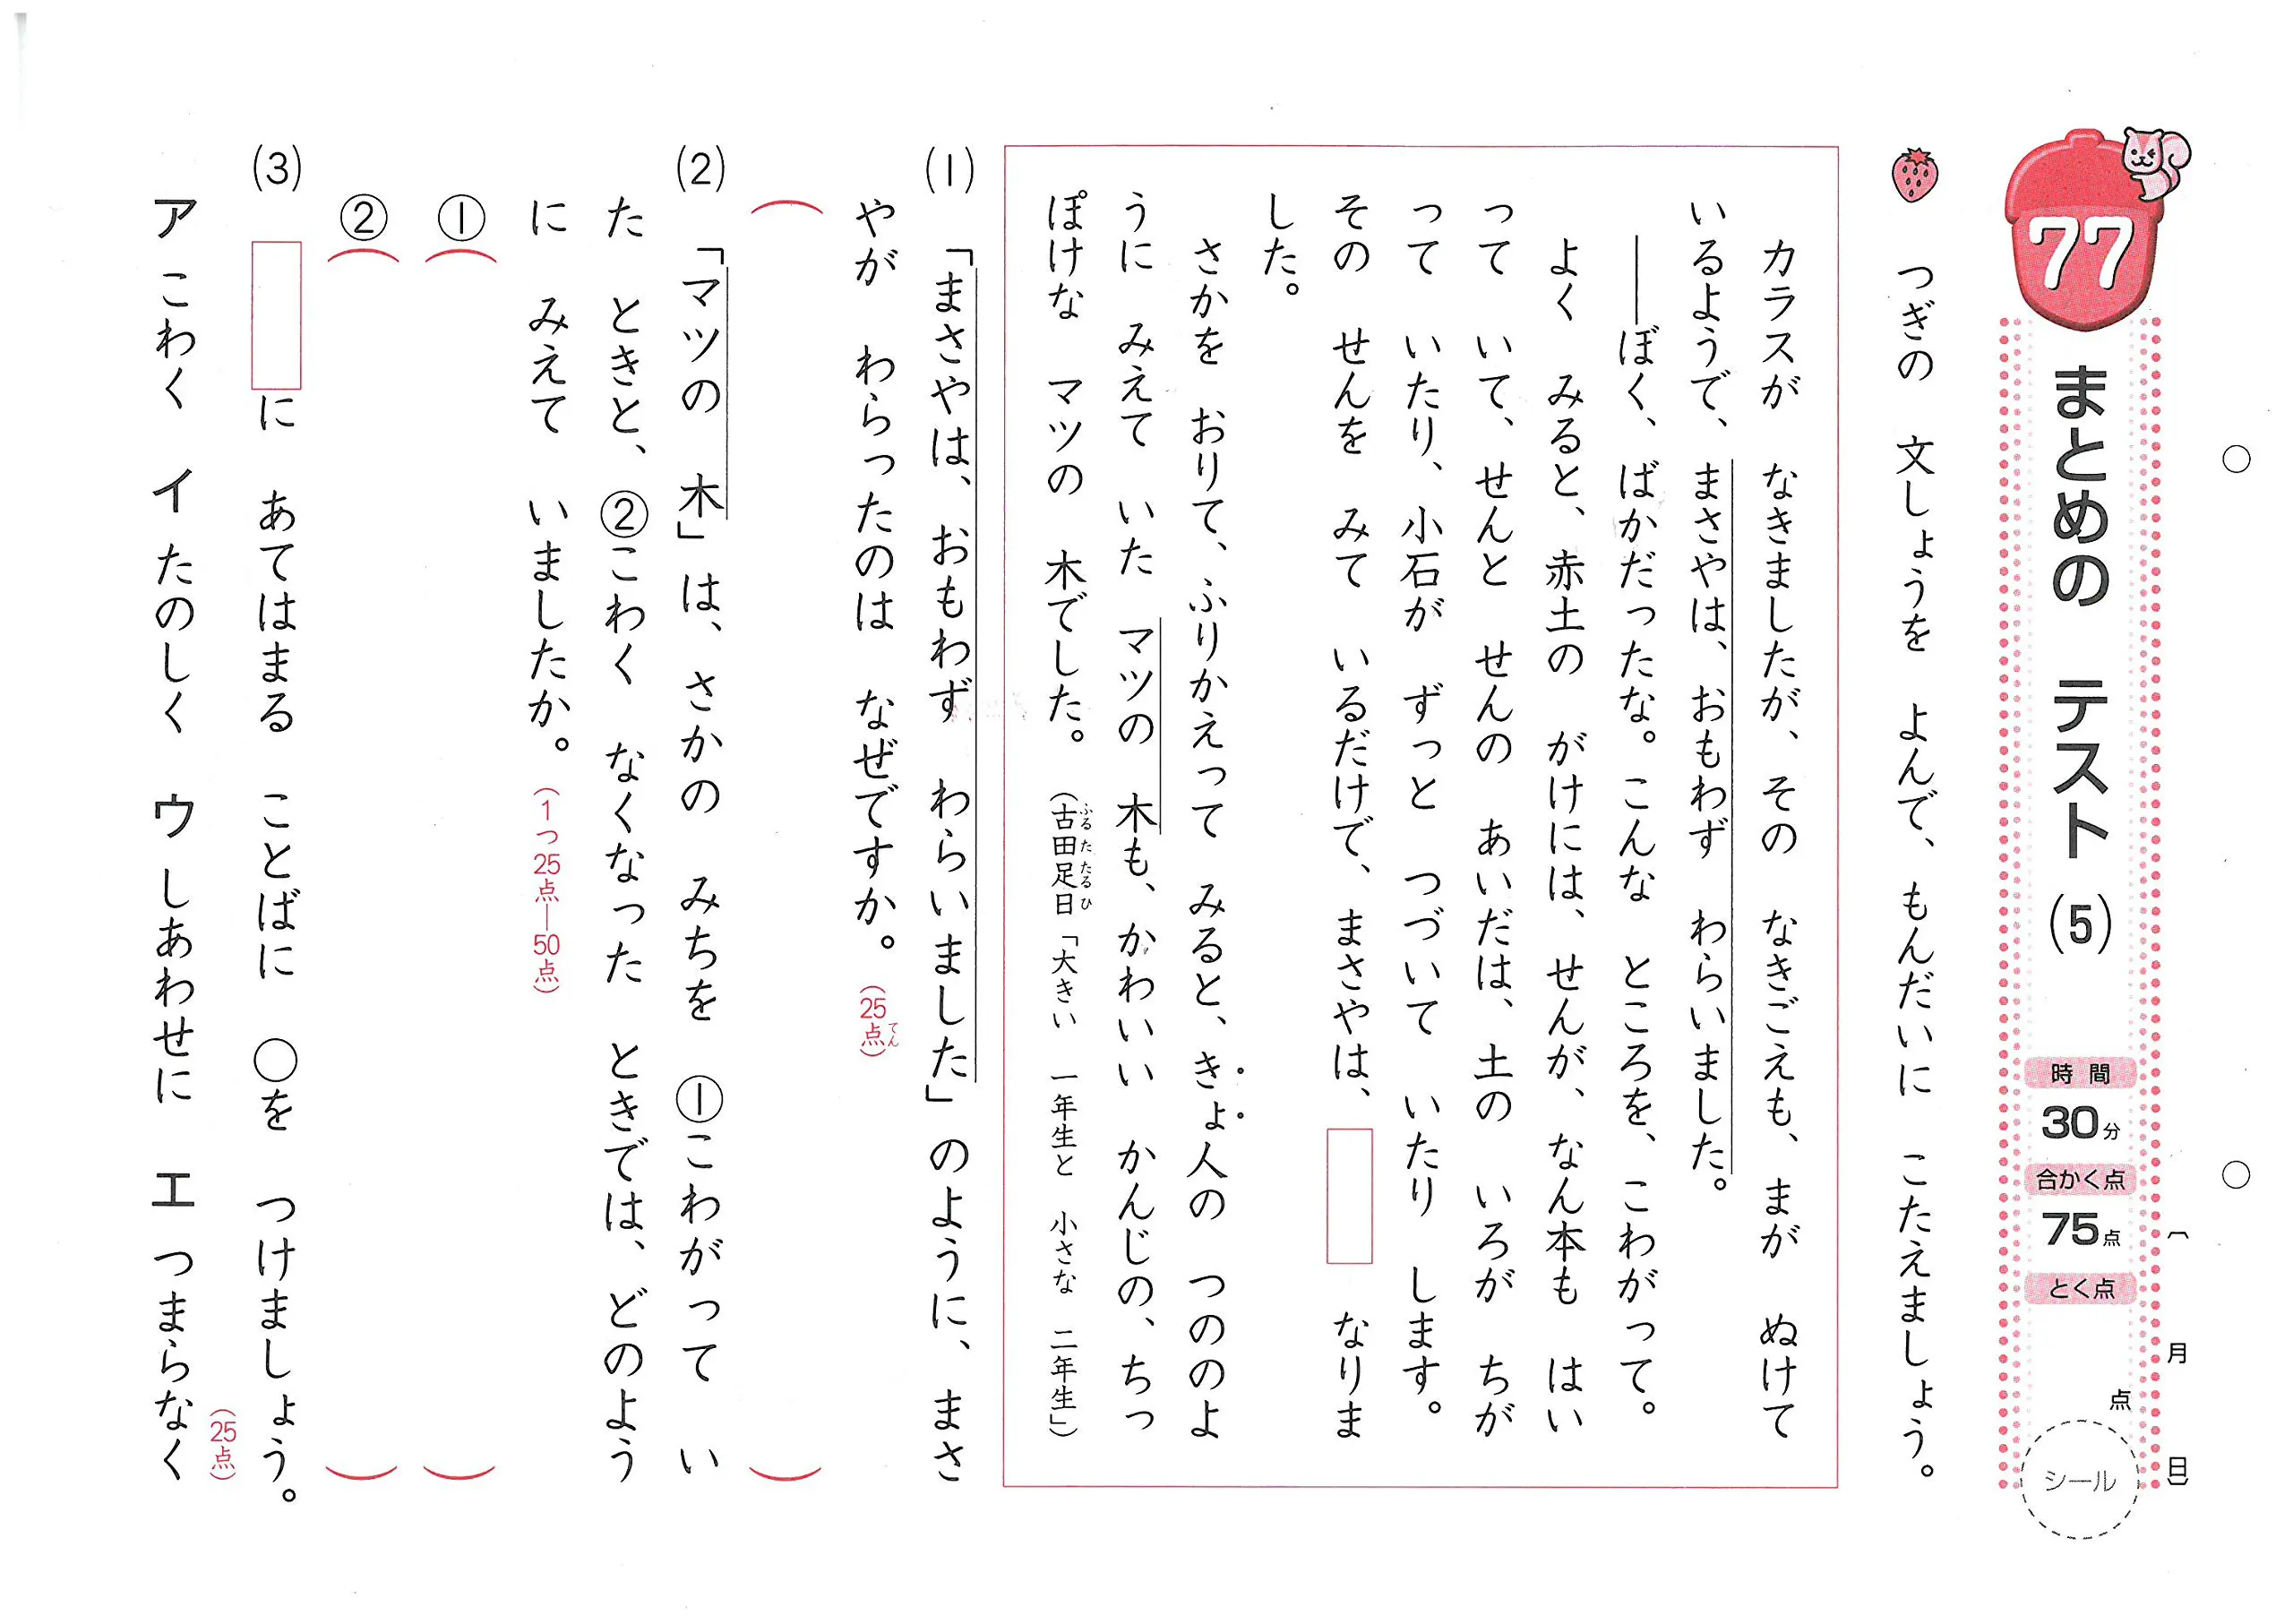 77
まとめの テスト (5)
時間
30分
合かく点
75点
とく点
点
シール
( 月 日)
つぎの 文しょうを よんで、もんだいに こたえましょう。
カラスが なきましたが、その なきごえも、まが ぬけて
いるようで、まさやは、おもわず わらいました。
――ぼく、ばかだったな。こんな ところを、こわがって。
よく みると、赤土の がけには、せんが、なん本も はい
って いて、せんと せんの あいだは、土の いろが ちが
って いたり、小石が ずっと つづいて いたり します。
その せんを みて いるだけで、まさやは、 なりま
した。
さかを おりて、ふりかえって みると、きょ人の つののよ
うに みえて いた マツの 木も、かわいい かんじの、ちっ
ぽけな マツの 木でした。
(古田足日「大きい 一年生と 小さな 二年生」)
ふるたたるひ
(1) 「まさやは、おもわず わらいました」のように、まさ
やが わらったのは なぜですか。(25点)
てん
( )
(2) 「マツの 木」は、さかの みちを ①こわがって い
た ときと、②こわく なくなった ときでは、どのよう
に みえて いましたか。(1つ25点―50点)
① ( )
② ( )
(3) に あてはまる ことばに ○を つけましょう。
(25点)
ア こわく イ たのしく ウ しあわせに エ つまらなく